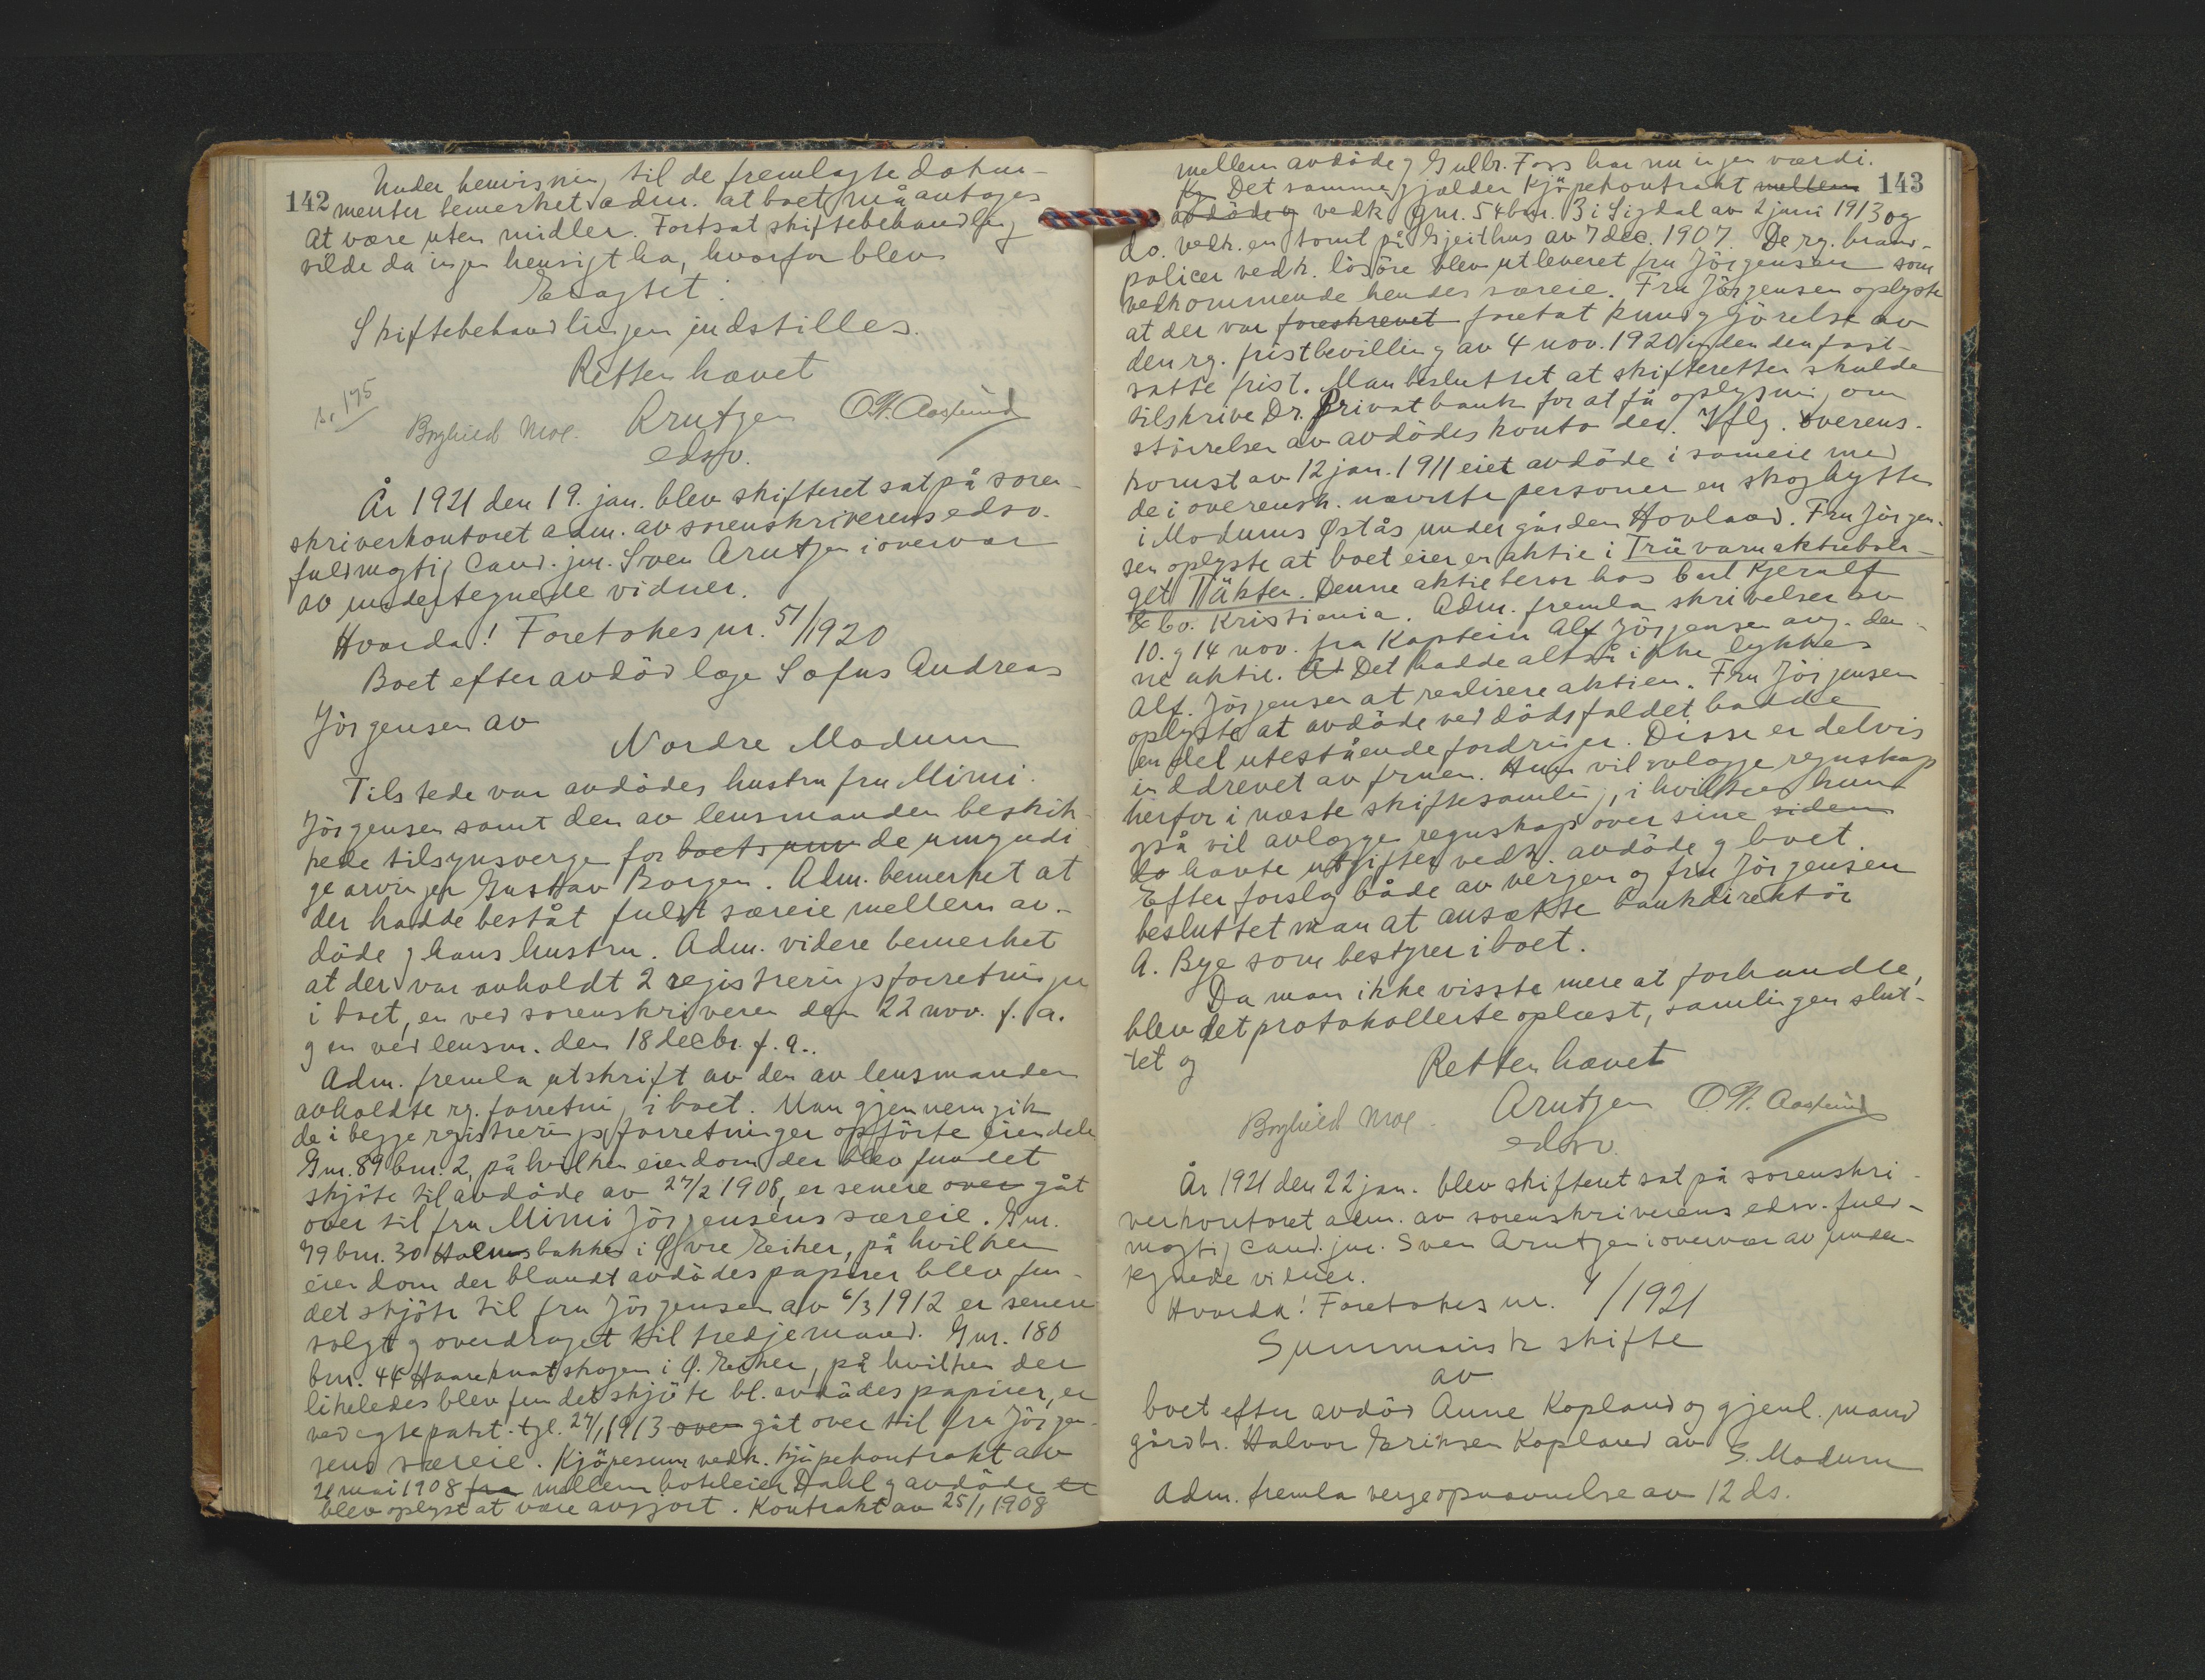 142
Under henvisning til de fremlagte doku-
menter bemerket adm. at boet må antages
at være uten midler. Fortsat skiftebehandling
vilde da ingen hensigt ha, hvorfor blev
Eragtet:
Skiftebehandlingen indstilles.
Retten hævet
Borghild Moe. Arntzen O.N. Aaslund
edsv.
År 1921 den 19. jan. blev skifteret sat på soren-
skriverkontoret adm. av sorenskriverens edsv.
fuldmægtig Cand. jur. Sven Arntzen i overvær
av undertegnede vidner.
Hvorda! Foretokes nr. 51/1920
Boet efter avdöd læge Sofus Andreas
Jörgensen av
Nordre Modum
Tilstede var avdödes hustru fru Mimi
Jörgensen samt den av lensmanden beskik-
kede tilsynsverge for boets um de umyndi
ge arvinger Gustav Borgen. Adm. bemerket at
der hadde bestått fuldt særeie mellem av-
döde g hans hustru. Adm. videre bemerket
at der var avholdt 2 registreringsforretninger
i boet, en ved sorenskriveren den 22 nov. f. a.
g en ved lensm. den 18 decbr. f. a..
Adm. fremla utskrift av den av lensmanden
avholdte rg. forretning i boet. Man gjennemgik
de i begge registreringsforretninger opförte eiendele
Gnr. 89 bnr. 2, på hvilken eiendom der blev fundet
skjöte til avdöde av 27/2 1908, er senere over gåt
over til fru Mimi Jörgensens særeie. Gnr.
79 bnr. 30 Holmsbakken i Øvre Eiker, på hvilken
eiendom der blandt avdödes papirer blev fun-
det skjöte til fru Jörgensen av 6/3 1912 er senere
solgt g overdraget til tredjemand. Gnr. 180
bnr. 44 Haareknatskogen i Ø. Eiker, på hvilken der
likeledes blev fundet skjöte bl. avdödes papirer, er
ved egtepakt. tgl. 27/1 1913 over gåt over til fru Jörgen-
sens særeie. Kjöpesum vedk. kjöpekontrakt av
21 mai 1908 fra mellem hoteleier Dahl g avdöde er
blev oplyst at være avgjort. Kontrakt av 25/1 1908
143
mellem avdöde g Gulbr. Foss har nu ingen værdi.
Kj Det samme gjælder kjöpekontrakt mellem
avdöde g vedk. gnr. 54 bnr. 3 i Sigdal av 2 juni 1913 og
do. vedk. en tomt på Gjeithus av 7 dec. 1907. De rg. brand-
policer vedk. lösöre blev utleveret fru Jörgensen som
vedkommende hendes særeie. Fru Jörgensen oplyste
at der var foreskrevet foretat kundgjörelse av
den rg. fristbevilling av 4 nov. 1920 inden den fast-
satte frist. Man besluttet at skifteretten skulde
tilskrive Dr. Privatbank for at få oplysning om
störrelsen av avdödes konto der. Iflg. overens-
komst av 12 jan. 1911 eiet avdöde i sameie med
de i overensk. nævnte personer en skoghytte
i Modums Østås under gården Hovland. Fru Jörgen-
sen oplyste at boet eier en aktie i Trävaruaktiebola-
get Täkten. Denne aktie beror hos Carl Kjerulf
& Co. Kristiania. Adm. fremla skrivelser av
10. g 14 nov. fra Kaptein Alf Jörgensen ang. den-
ne aktie. At Det hadde altså ikke lykkes
Alf. Jörgensen at realisere aktien. Fru Jörgensen
oplyste at avdöde ved dödsfaldet hadde
en del utestående fordringer. Disse er delvis
inddrevet av fruen. Hun vil avlægge regnskap
herfor i næste skiftesamling, i hvilken hun
også vil avlægge regnskap over sine siden
da havte utgifter vedk. avdöde g boet.
Efter forslag både av vergen og fru Jörgensen
besluttet man at ansætte bankdirektör
A. Bye som bestyrer i boet.
Da man ikke visste mere at forhandle,
blev det protokollerte oplæst, samlingen slut-
tet og
Retten hævet
Borghild Moe. Arntzen O.N. Aaslund
edsv.
År 1921 den 22 jan. blev skifteret sat på sorenskri-
verkontoret adm. av sorenskriverens edsv. fuld-
mægtig cand. jur. Sven Arntzen i overvær av under-
tegnede vidner.
Hvorda! Foretokes nr. 4/1921
Summarisk skifte
av
boet efter avdöd Anne Kopland og gjenl. mand
gårdbr. Halvor Eriksen Kopland av
S. Modum
Adm. fremla vergeopnævnelse av 12 ds.